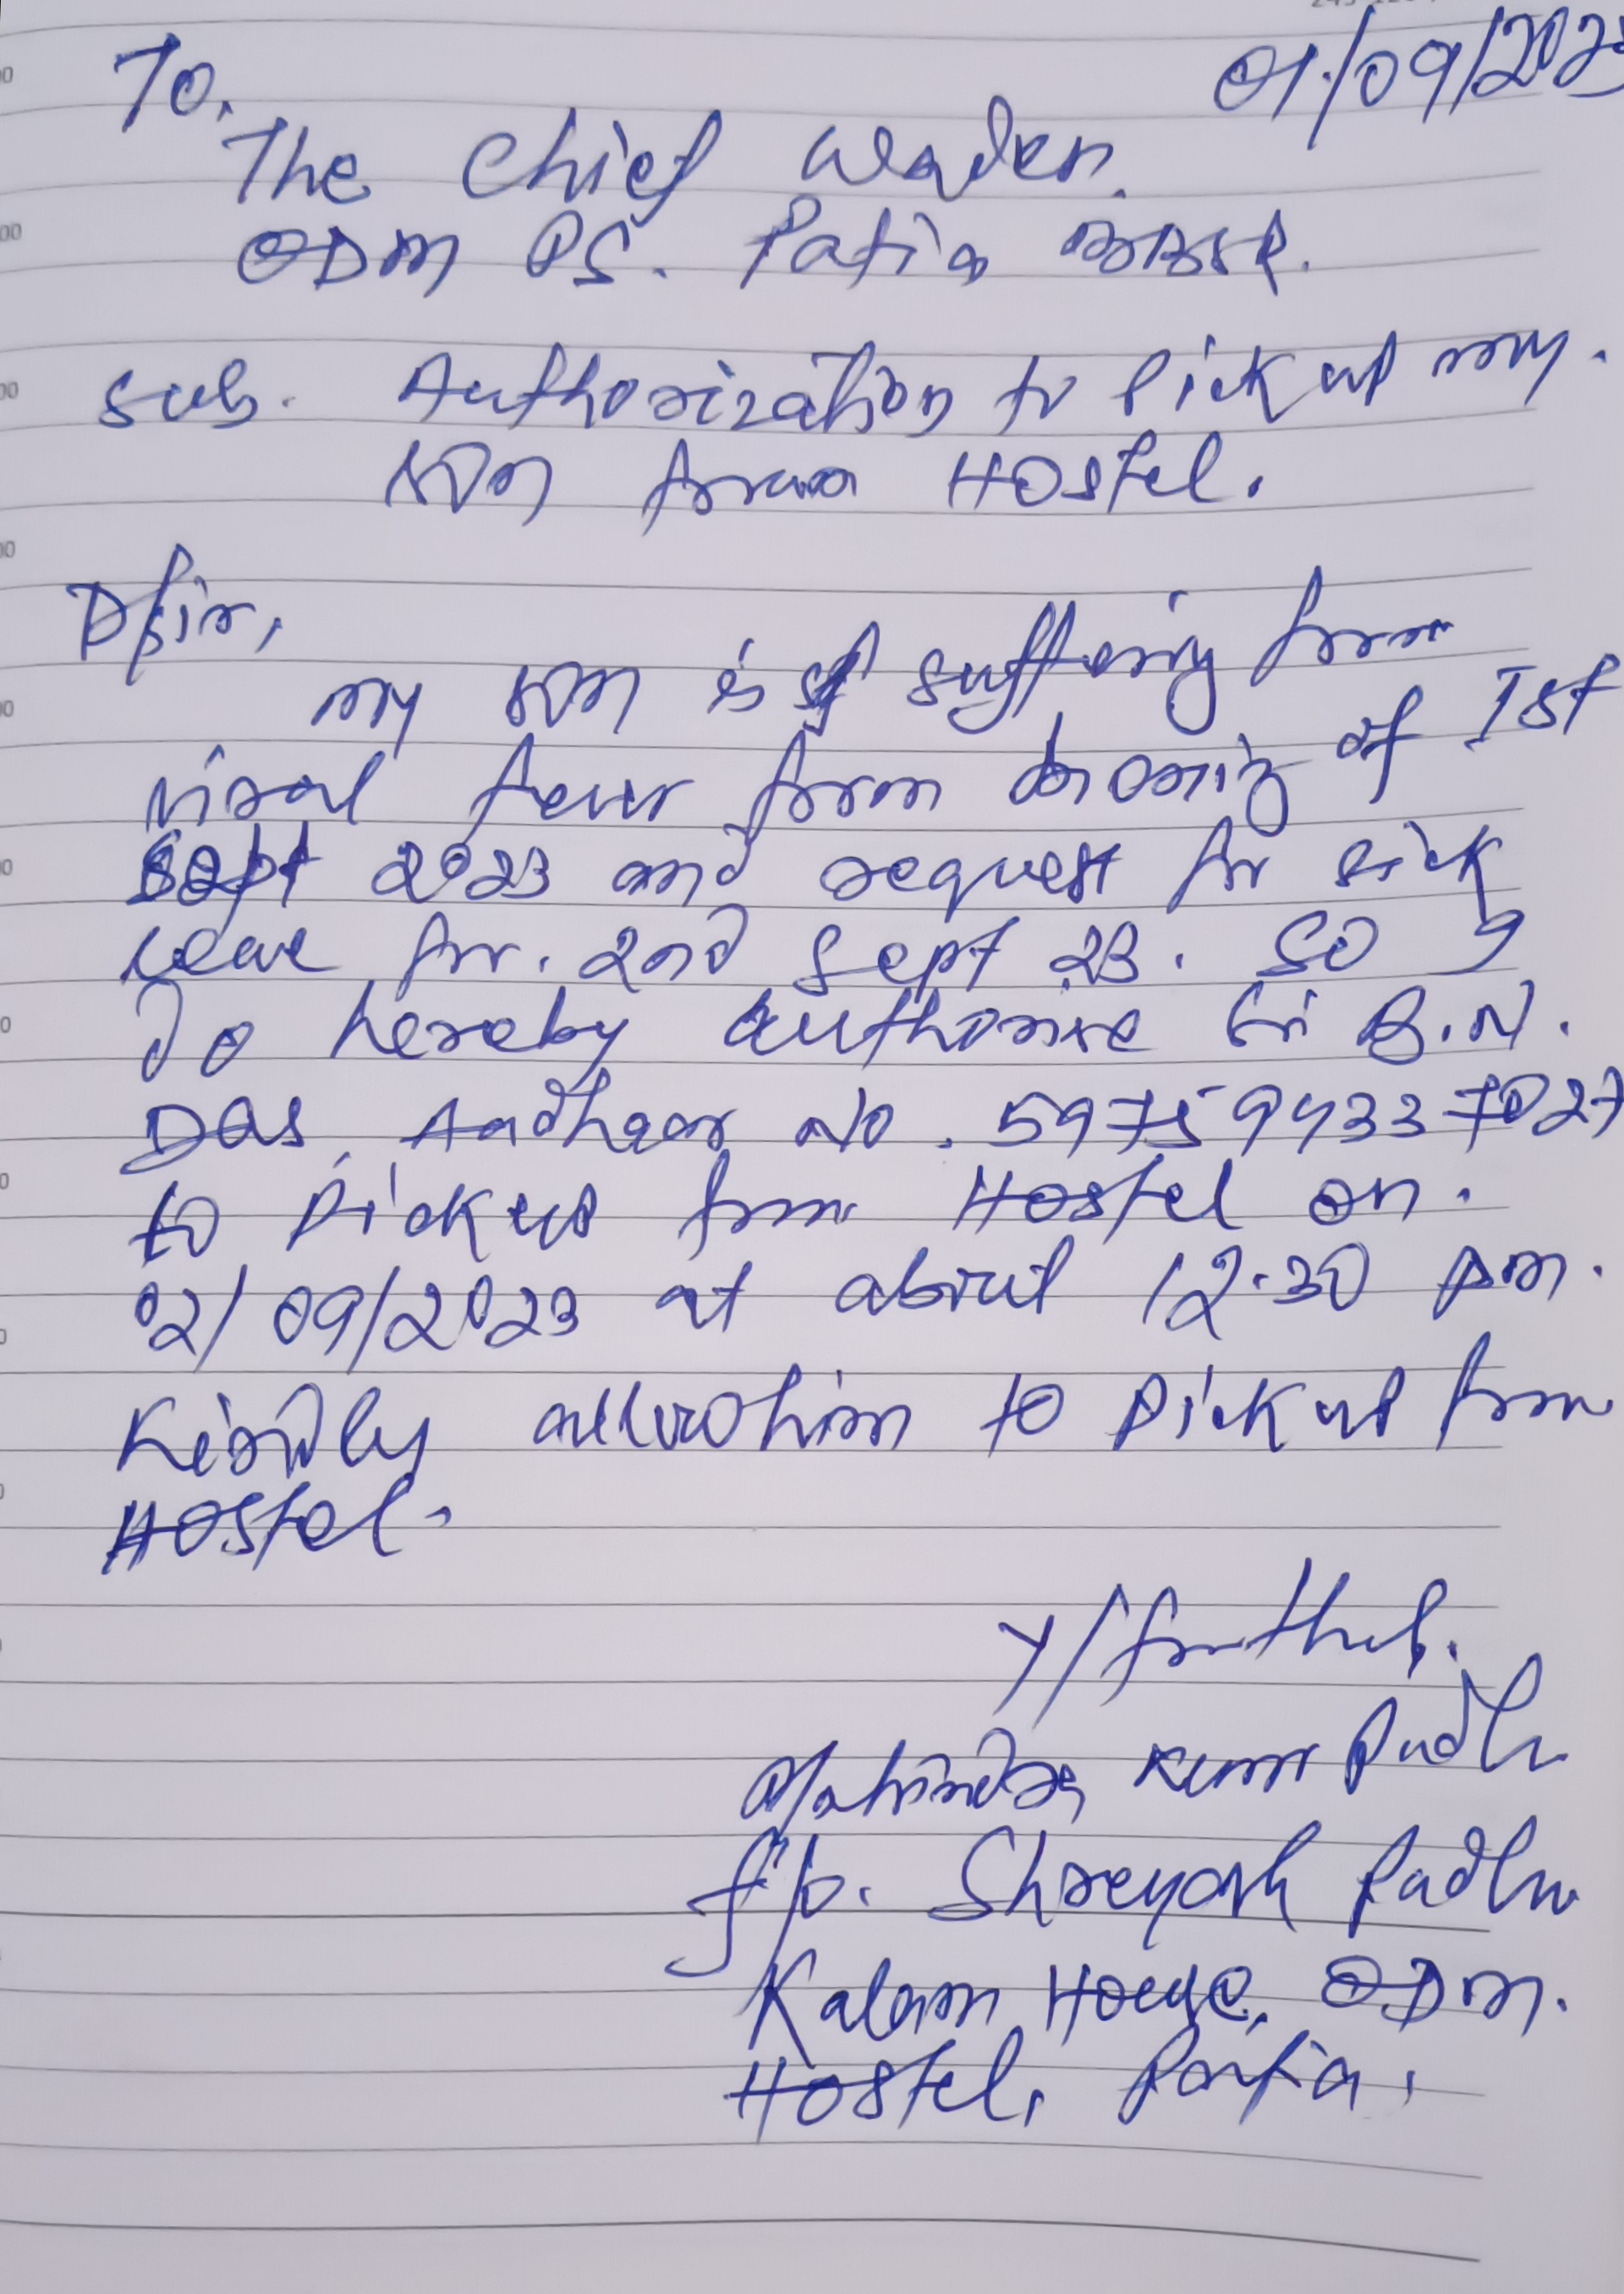 01/09/2023
To,
The Chief Warden.
ODM PS. Patia BBSR.
Sub. Authorization to Pickup my.
son from Hostel.
D/Sir,
my son is suffering from
viral fever from morning of 1st
Sept 2023 and request for sick
leave for. 2nd Sept 23. So I
do hereby authorise Sri B.N.
DAS, Aadhaar No. 597594337027
to Pickup from Hostel on.
02/09/2023 at about 12.30 pm.
Kindly allow him to Pickup from
Hostel.
Y/faithful.
Mahindra Kumar Padhi
F/o. Shreyash Padhi
Kalam House, ODM.
Hostel, Patia,